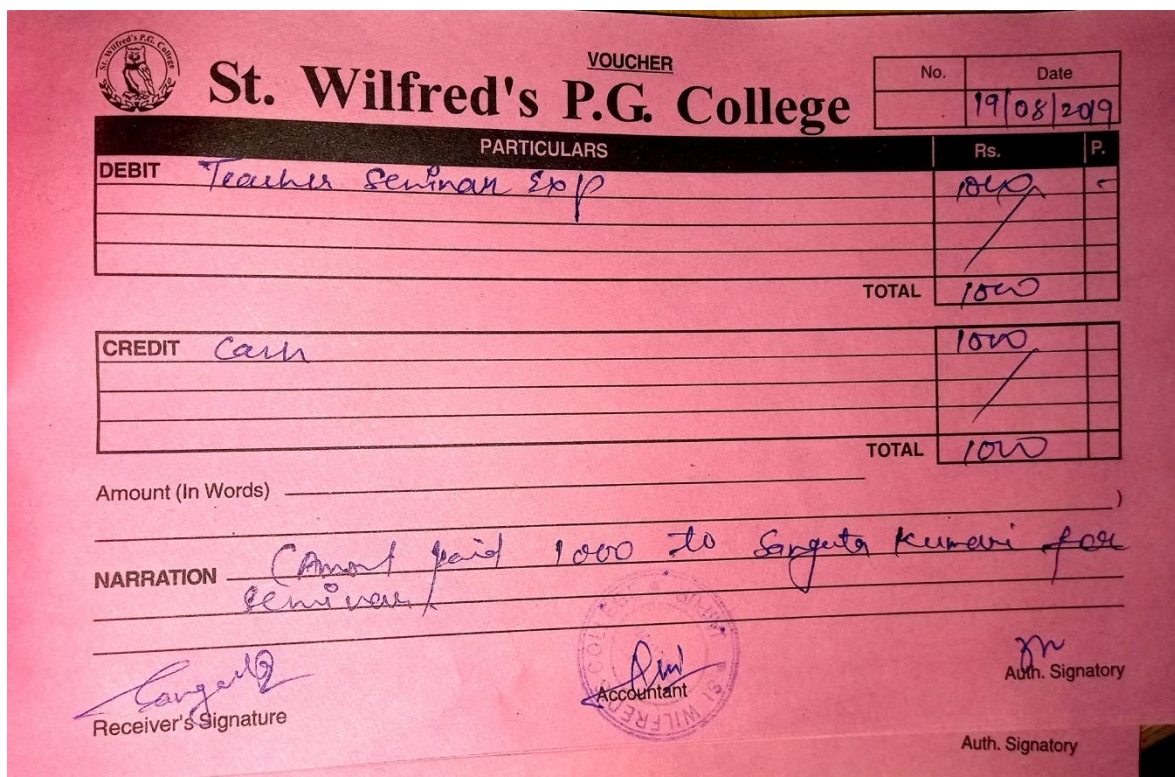 St. Wilfred's P.G. College
VOUCHER
St. Wilfred's P.G. College
No. Date
19/08/2019
PARTICULARS Rs. P.
DEBIT Teacher Seminar Exp 1000 -
TOTAL 1000
CREDIT Cash 1000
TOTAL 1000
Amount (In Words)
)
NARRATION (Amont paid 1000 to Sangeeta Kumari for
seminar
Receiver's Signature
Accountant
Auth. Signatory
ST WILFRED'S COLLEGE
Auth. Signatory